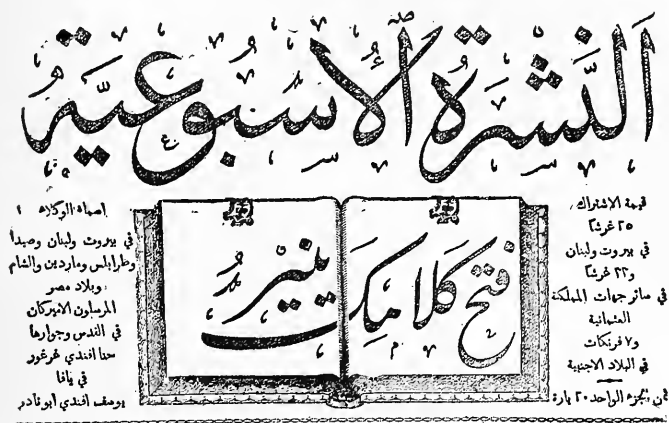 النَّشْرَةُ الْأُسْبُوعِيَّةُ
قيمة الاشتراك
٢٥ غرشًا
في بيروت ولبنان
و٢٢ غرشًا
في سائر جهات المملكة
العثمانية
و٧ فرنكات
في البلاد الاجنبية
ثمن الجزء الواحد ٢٠ بارة
فتح كلامك ينير
اسماء الوكلاء
في بيروت ولبنان وصيدا
وطرابلس وماردين والشام
وبلاد مصر
المرسلون الاميركان
في القدس وجوارها
حنا افندي غرغور
في يافا
يوسف افندي ابو نادر